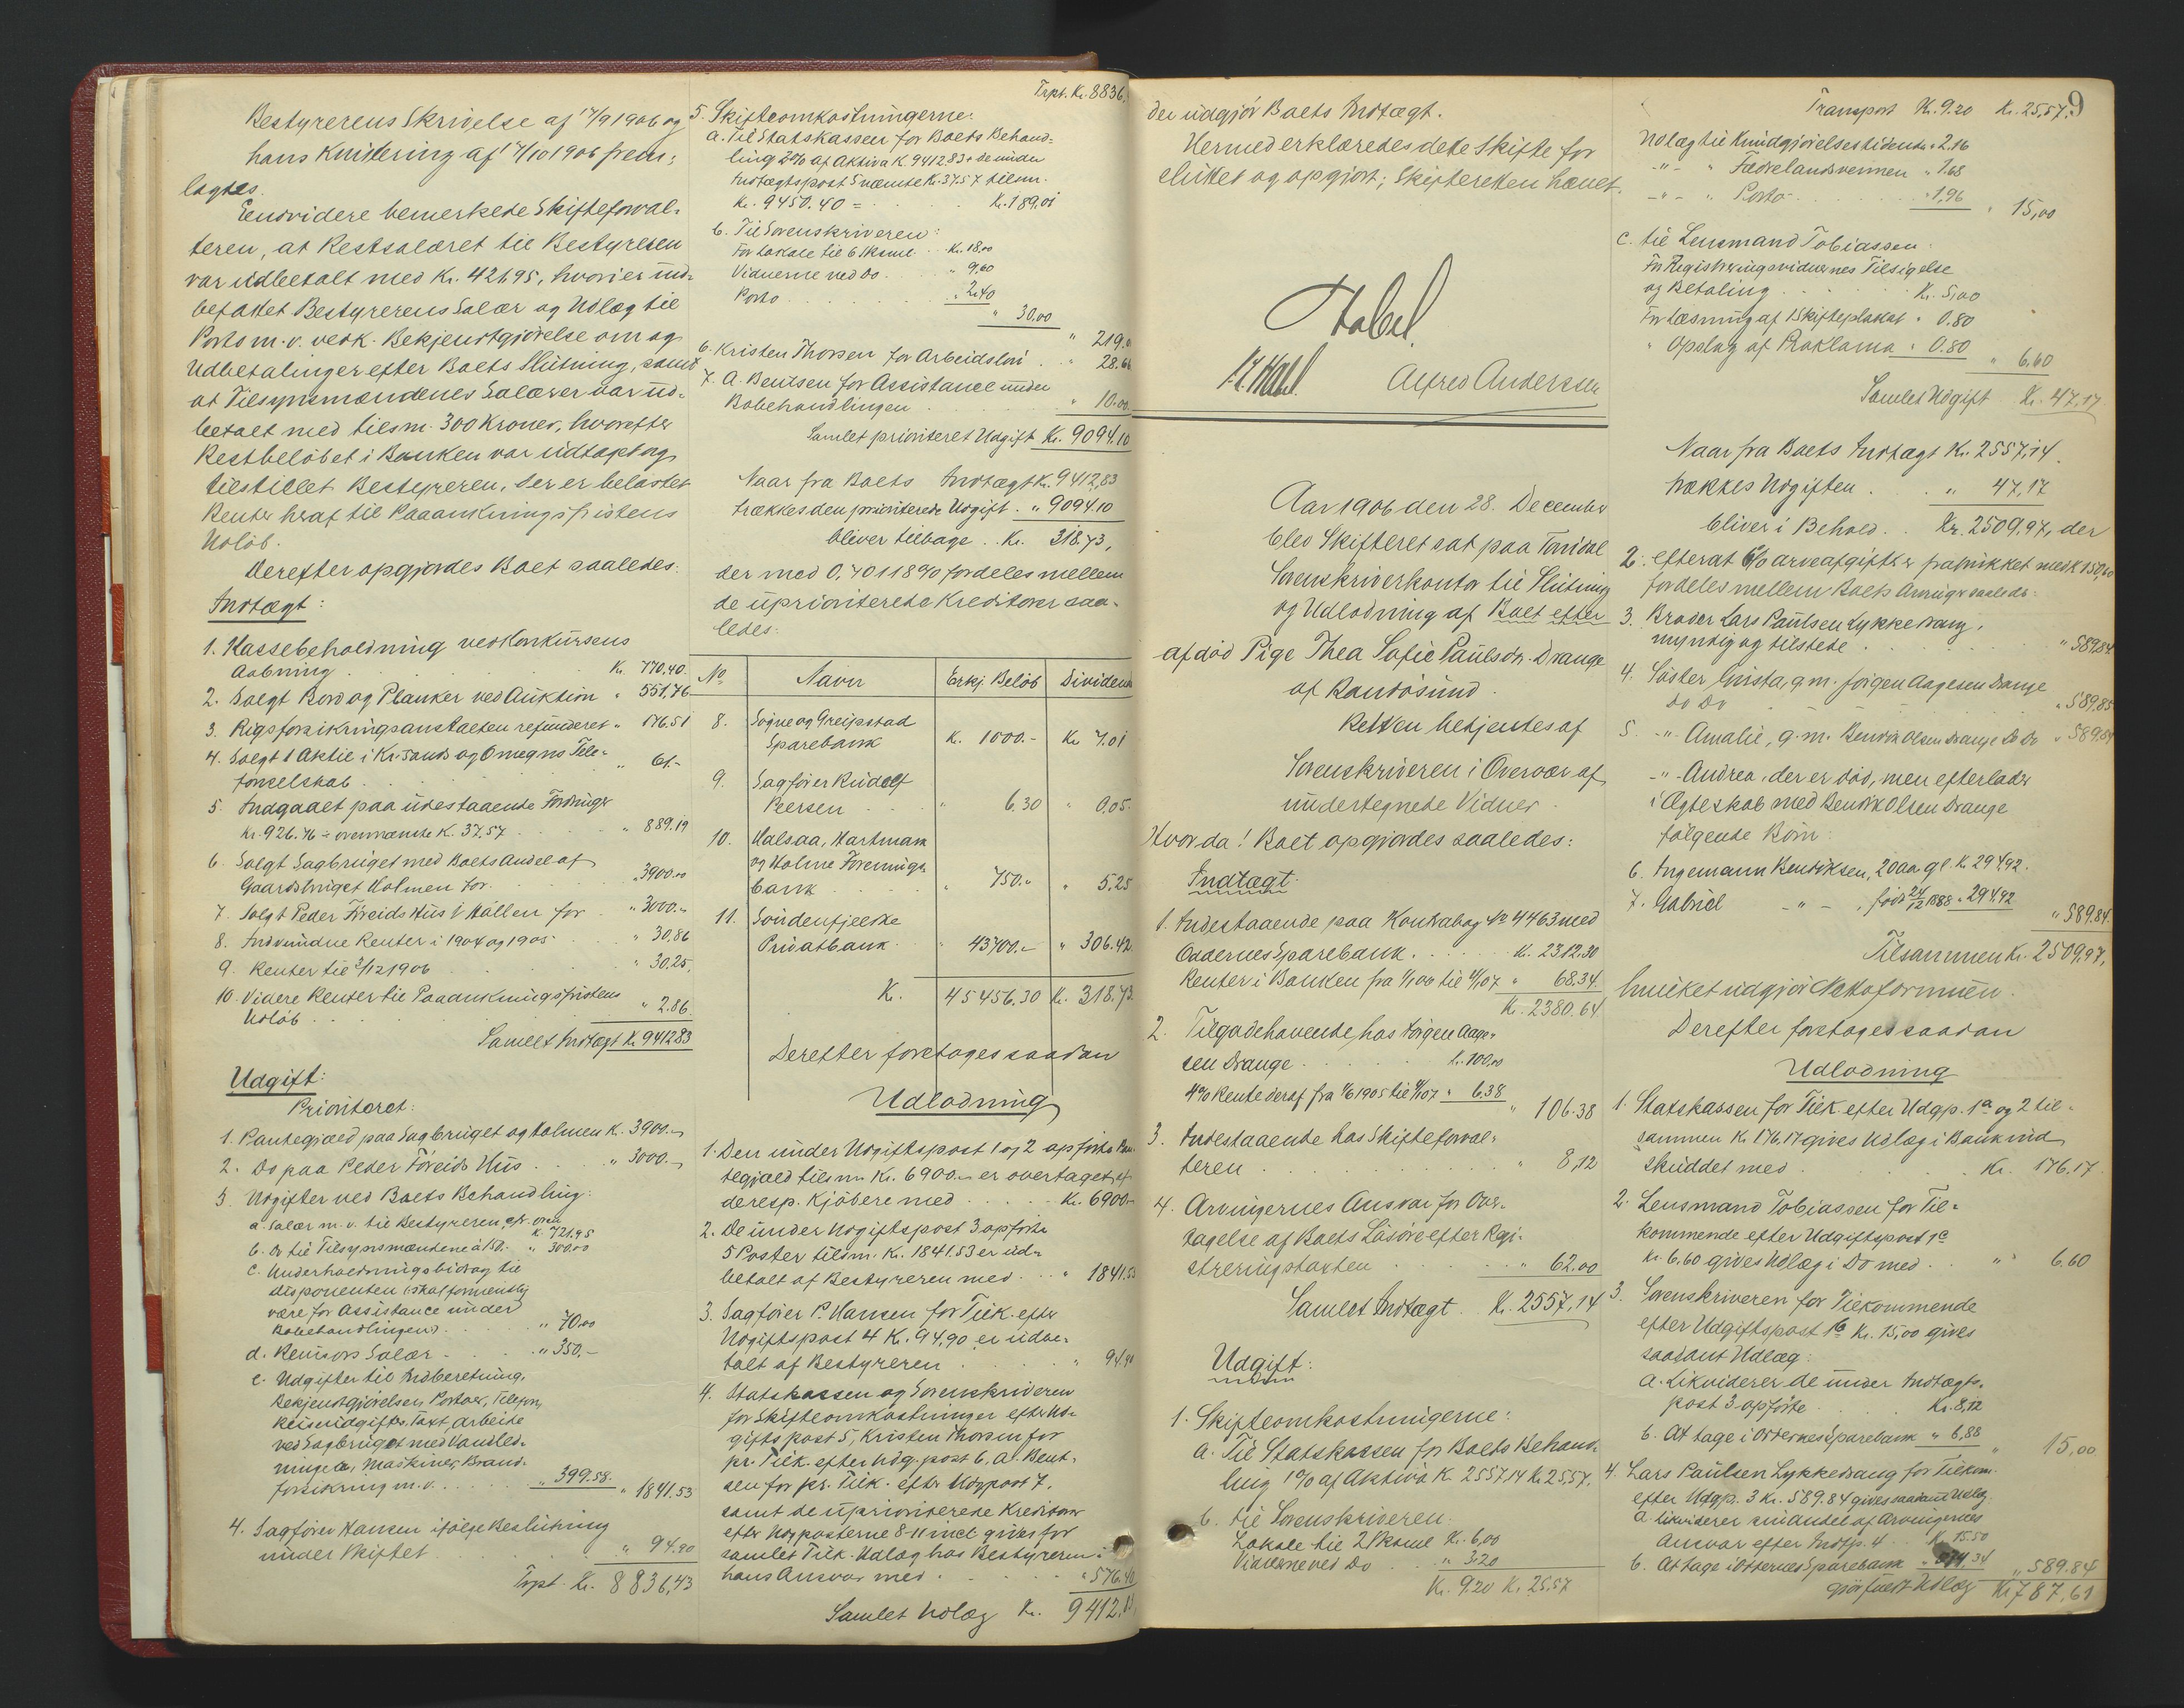 Bestyrerens Skrivelse af 17/9 1906 og
hans Kvittering af 17/10 1906 frem-
lagtes.
Endvidere bemerkede Skifteforval-
teren, at Restsalæret til Bestyreren
var udbetalt med Kr. 421,95, hvori er ind-
befattet Bestyrerens Salær og Udlæg til
Porto m. v. vedk. Bekjendtgjørelse om og
Udbetalinger efter Boets Slutning, samt
at Tilsynsmændenes Salærer var ud-
betalt med tilsm. 300 Kroner, hvorefter
Restbeløbet i Banken var udtaget og
tilstillet Bestyreren, der er belastet
Renter heraf til Paaankningsfristens
Udløb.
Derefter opgjordes Boet saaledes:
Indtægt:
1. Kassebeholdning ved Konkursens
Aabning . . Kr. 770,40.
2. Solgt Bord og Planker ved Auktion " 551,76
3. Rigsforsikringsanstalten refunderet " 176.51
4. Solgt 1 Aktie i Kr.sands og Omegns Tele-
fonselskab . . " 61.-
5. Indgaaet paa udestaaende Fordringer
Kr. 926.76 ÷ ovennævnte K. 37,57 . . " 889.19
6. Solgt Sagbruget med Boets Andel af
Gaardsbruget Holmen for . . " 3900.00
7. Solgt Peder Föreids Hus i Hällen for " 3000.-
8. Indvundne Renter i 1904 og 1905 " 30,86
9. Renter til 3/12 1906 . . " 30.25,
10. Videre Renter til Paaankningsfristens
Udløb . . " 2.86.
Samlet Indtægt K. 9412.83
Udgift:
Prioriteret:
1. Pantegjæld paa Sagbruget og Holmen K. 3900.-
2. Do paa Peder Föreids Hus . . " 3000.-
3. Udgifter ved Boets Behandling:
a. Salær m. v. til Bestyreren, cfr. oven K. 721.95
b. Do til Tilsynsmændene à 150.- " 300.00
c. Underholdningsbidrag til
disponenten (skal formentlig
være for Assistance under
Bobehandlingen) . . " 70.00
d. Revisors Salær . . " 350.-
e. Udgifter til Indberetning,
Bekjendtgjørelser, Portoer, Telefon,
Reiseudgifter, Taxt, arbeide
ved Sagbruget med Vandled-
ningen, Maskiner, Brand-
forsikring m. v. . . " 399.58. " 1841.53
4. Sagfører Hansen ifølge Beslutning
under Skiftet . . " 94.90
Trpt. Kr. 8836,43
Trpt. Kr. 8836.
5. Skifteomkostningerne:
a. Til Statskassen for Boets Behand-
ling 2% af Aktiva K. 9412.83 + de under
Indtægtspost 5 nævnte Kr. 37.57 tilsm.
Kr. 9450.40 = . . Kr. 189.01
b. Til Sorenskriveren:
For Lokale til 6 Skml. . Kr. 18.00
Vidnerne ved Do . . " 9,60
Porto . . " 2.40
" 30.00
" 219.
6. Kristen Thorsen for Arbeidsløn . . " 28.66
7. A. Bentsen for Assistance under
Bobehandlingen . . " 10.00
Samlet prioriteret Udgift Kr. 9094.10
Naar fra Boets Indtægt K. 9412,83
trækkes den prioriterede Udgift . " 9094.10
bliver tilbage . . Kr. 318.73,
der med 0,701189% fordeles mellem
de uprioriterede Kreditorer saa-
ledes:
No Navn Erkj. Beløb Dividende
8. Søgne og Greipstad
Sparebank K. 1000.- Kr. 7.01
9. Sagfører Rudolf
Persen " 6.30 " 0,05.
10. Halsaa, Hartmark
og Holme Forenings-
bank " 750.- " 5.25
11. Söndenfjeldske
Privatbank " 43700.- " 306.42
Kr. 45456.30 Kr. 318.73.
Derefter foretages saadan
Udlodning
1. Den under Udgiftspost 1 og 2 opførte Pan-
tegjæld tilsm. Kr. 6900.- er overtaget af
de resp. Kjøbere med . . Kr. 6900.-
2. De under Udgiftspost 3 opførte
5 Poster tilsm. Kr. 1841.53 er ud-
betalt af Bestyreren med . . " 1841.53
3. Sagfører P. Hansen for Tilk. efter
Udgiftspost 4 Kr. 94,90 er udbe-
talt af Bestyreren . . " 94.90
4. Statskassen og Sorenskriveren
for Skifteomkostninger efter Ud-
giftspost 5, Kristen Thorsen for
pr. Tilk. efter Udg. post 6, A. Bent-
sen for pr. Tilk. efter Udgpost 7.
samt de uprioriterede Kreditorer
efter Udgposterne 8-11 incl. gives for
samlet Tilk. Udlæg hos Bestyreren i
hans Ansvar med . . " 576.40
Samlet Udlæg Kr. 9412.83
9
der udgjör Boets Indtægt.
Hermed erklæredes dette Skifte for
sluttet og opgjort; Skifteretten hævet.
Stabel
Alfred Andersen
Aar 1906 den 28. December
blev Skifteret sat paa Torridal
Sorenskriverkontor til Slutning
og Udlodning af Boet efter
afdød Pige Thea Sofie Paulsdr. Drange
af Randösund.
Retten betjentes af
Sorenskriveren i Overvær af
undertegnede Vidner.
Hvorda! Boet opgjordes saaledes:
Indtægt:
1. Indestaaende paa Kontrabog No 4463 med
Oddernes Sparebank . . Kr. 2312.30
Renter i Banken fra 1/1 06 til 4/1 07 " 68.34.
Kr. 2380.64
2. Tilgodehavende hos Jørgen Aage-
sen Drange . . Kr. 100,00
4% Rente deraf fra 1/6 1905 til 4/1 07 " 6.38
" 106.38
3. Indestaaende hos Skifteforval-
teren . . " 8,12
4. Arvingernes Ansvar for Over-
tagelse af Boets Løsøre efter Regi-
streringstaxten . . " 62.00
Samlet Indtægt . Kr. 2557,14
Udgift:
1. Skifteomkostningerne:
a. Til Statskassen for Boets Behand-
ling 1% af Aktiva K. 2557.14 Kr. 25.57.
b. Til Sorenskriveren:
Lokale til 2 Skml. Kr. 6,00
Vidnerne ved Do . " 3.20
Kr. 9.20 K. 25.57
Transport Kr. 9.20 Kr. 25,57.
Udlæg til Kundgjørelsestidende " 2.16
-"- " Fædrelandsvennen " 1.68
-"- " Porto . . " 1,96
" 15,00
c. til Lensmand Tobiassen:
For Registreringsvidnernes Tilsigelse
og Betaling . . Kr. 5,00
For Læsning af 1 Skifteplakat " 0.80
" Opslag af Proklama " 0.80
" 6.60
Samlet Udgift Kr. 47,17.
Naar fra Boets Indtægt Kr. 2557,14.
trækkes Udgiften . . " 47,17
bliver i Behold . . Kr. 2509,97, der
2. efterat 6% arveafgift er fratrukket med K. 150,60
fordeles mellem Boets Arvinger saaledes:
3. Broder Lars Paulsen Lykkedrang,
myndig og tilstede . . " 589,84
4. Søster Grista, g. m. Jørgen Aagesen Drange
Do Do " 589,85
5. -"- Amalie, g. m. Bendik Olsen Drange Do Do " 589.84
-"- Andrea, der er død, men efterlader
i Ægteskab med Bendik Olsen Drange
følgende Børn:
6. Ingemann Bendiksen, 20 aa. gl. K. 294,92.
7. Gabriel -"- , født 24/12 1888 " 294,92
" 589.84.
Tilsammen Kr. 2509.97,
hvilket udgjör Nettoformuen.
Derefter foretages saadan
Udlodning
1. Statskassen for Tilk. efter Udgp. 1a og 2 til-
sammen Kr. 176.17 gives Udlæg i Bankind-
skuddet med . . Kr. 176.17.
2. Lensmand Tobiassen for Til-
kommende efter Udgiftspost 1c
Kr. 6.60 gives Udlæg i Do med . . " 6.60
3. Sorenskriveren for Tilkommende
efter Udgiftspost 1b Kr. 15,00 gives
saadant Udlæg:
a. Likviderer de under Indtægts-
post 3 opførte . . Kr. 8,12
b. At tage i Oddernes Sparebank " 6,88
" 15,00
4. Lars Paulsen Lykkedrang for Tilkom.
efter Udgp. 3 Kr. 589.84 gives saadant Udlæg:
a. likviderer sin andel af Arvingernes
Ansvar efter Indtp. 4 . . Kr. 15.50
b. At tage i Oddernes Sparebank " 574,34
" 589.84
Kr. 787,61